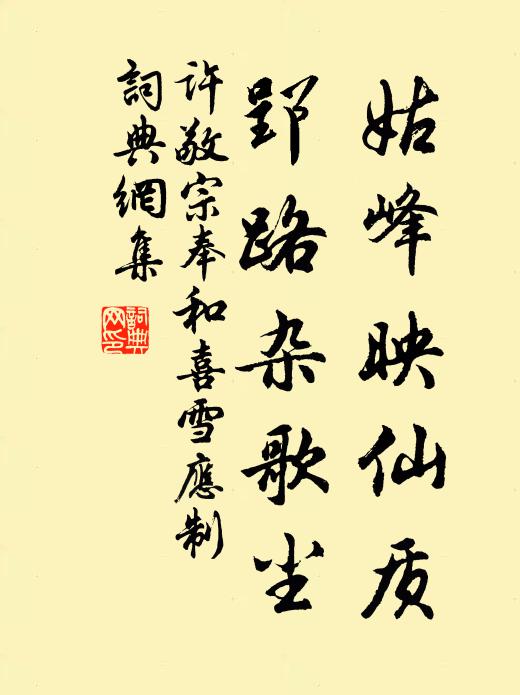 姑峰映仙质
郢路杂歌尘
许敬宗奉和喜雪應制
詞典網集
詞典網印